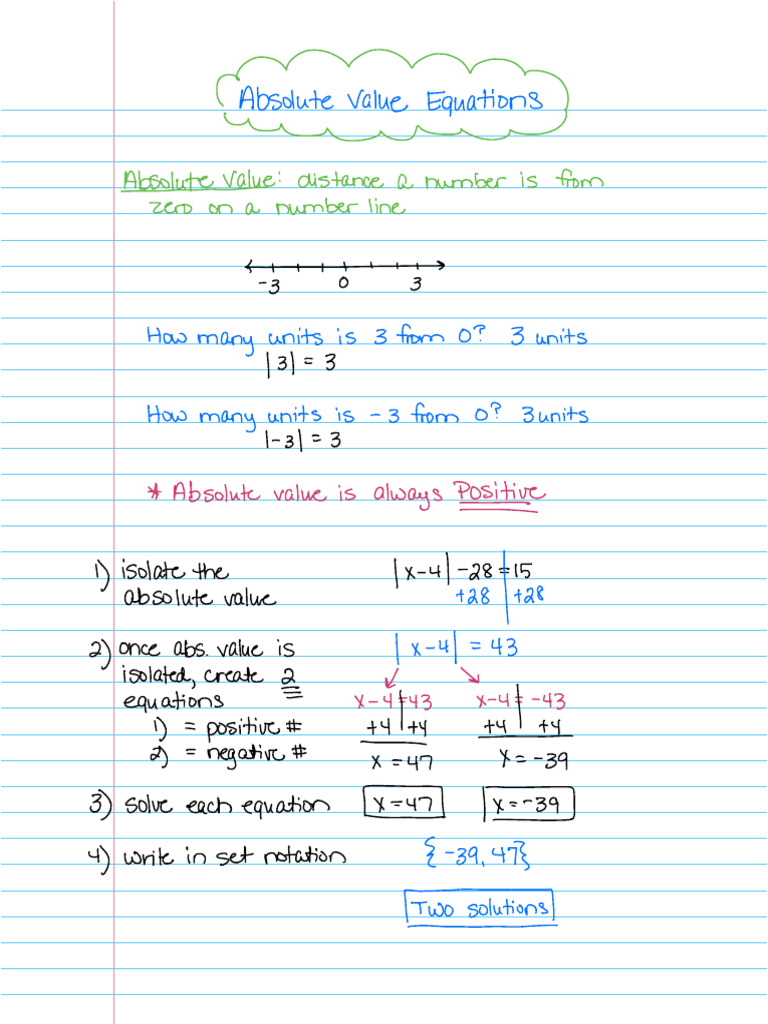 Absolute Value Equations
Absolute Value: distance a number is from
zero on a number line
-3 0 3
How many units is 3 from 0? 3 units
|3| = 3
How many units is -3 from 0? 3 units
|-3| = 3
* Absolute value is always Positive
1) isolate the
absolute value
|x-4| -28 = 15
+28 +28
2) once abs. value is
isolated, create 2
equations
1) = positive #
2) = negative #
|x-4| = 43
x-4 = 43 x-4 = -43
+4 +4 +4 +4
x = 47 x = -39
3) solve each equation x = 47 x = -39
4) write in set notation {-39, 47}
Two solutions